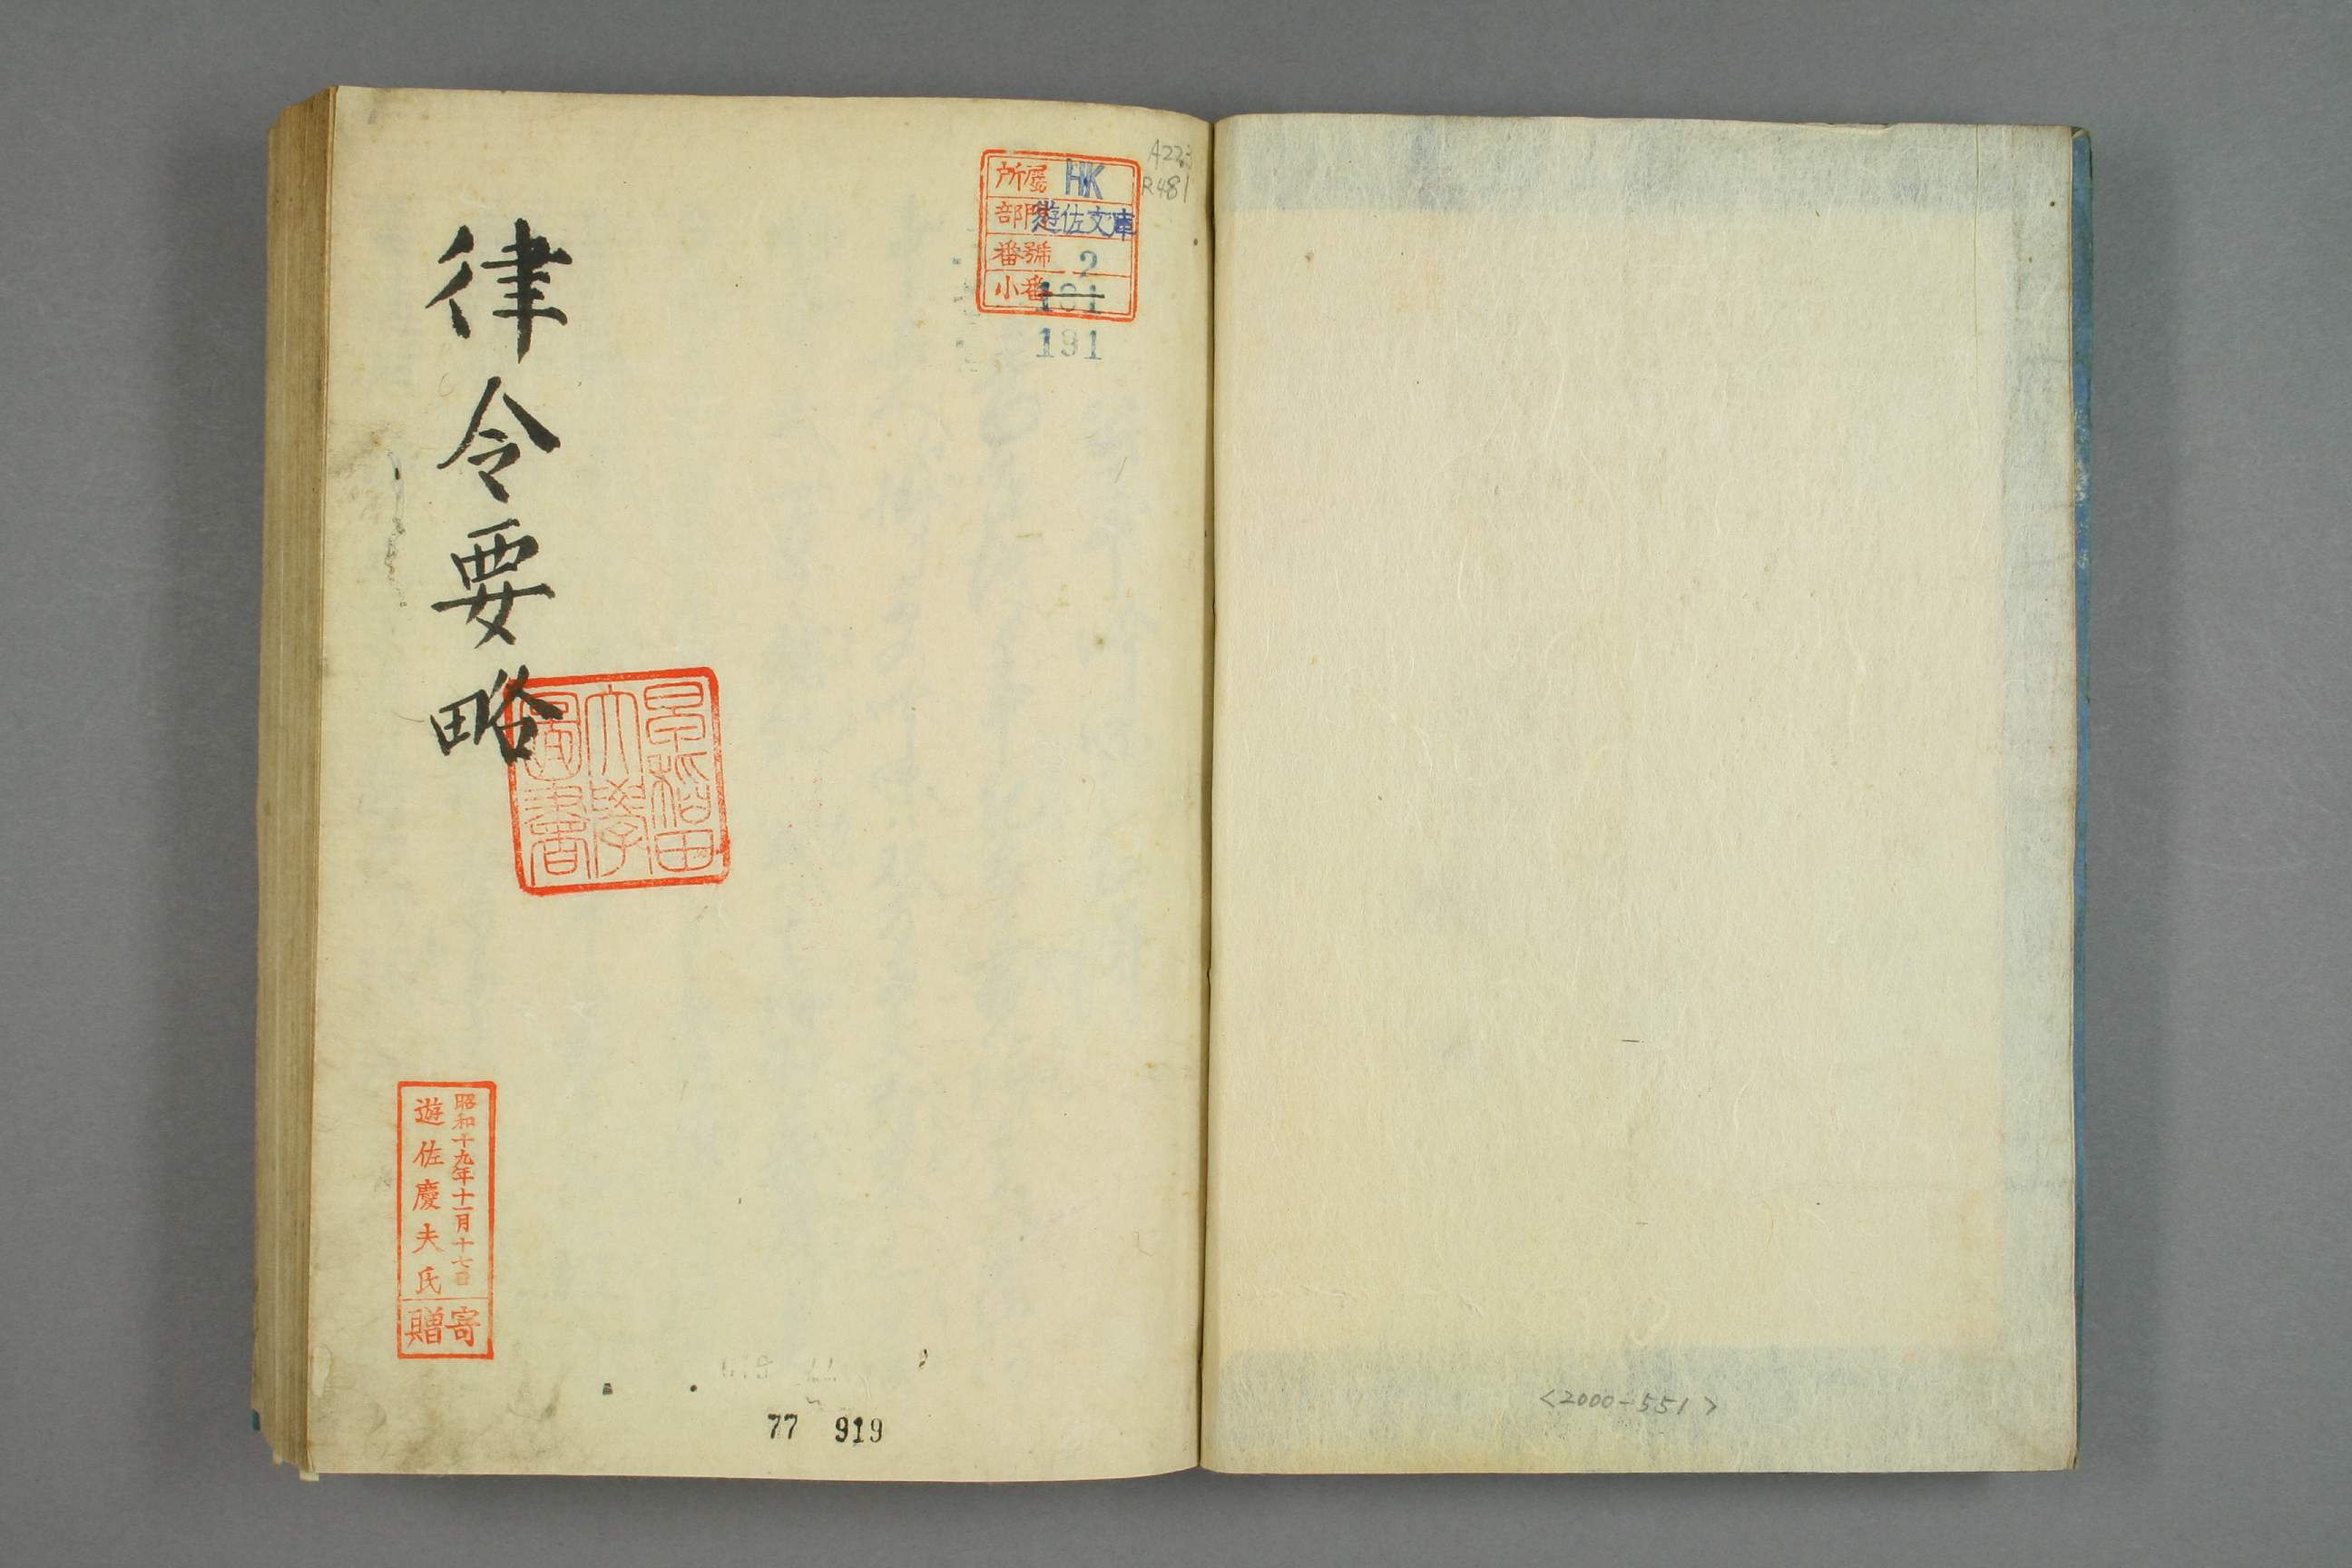 A223
R481
所屬 HK
部門 遊佐文庫
番號 2
小番 191
191
律令要略
早稲田
大學
圖書
昭和十九年十一月十七日
遊佐慶夫氏
寄贈
77 919
<2000-551>